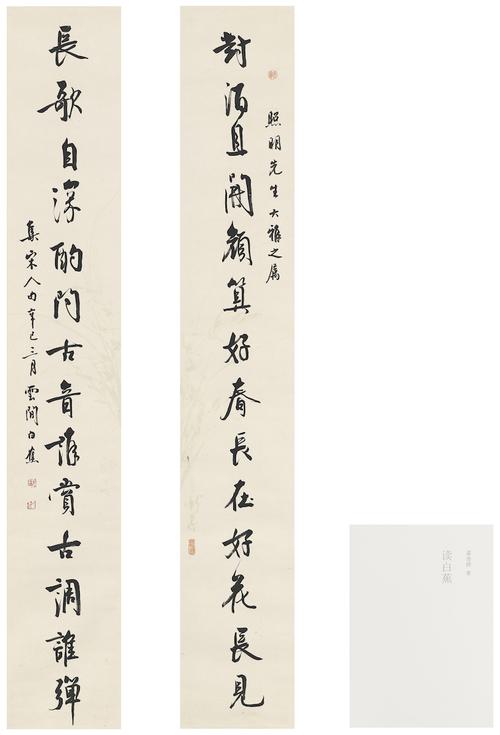 照明先生大雅之屬
對酒且開顏算好春長在好花長見
長歌自深酌問古音誰賞古調誰彈
集宋人句辛巳三月雲間白蕉
读白蕉